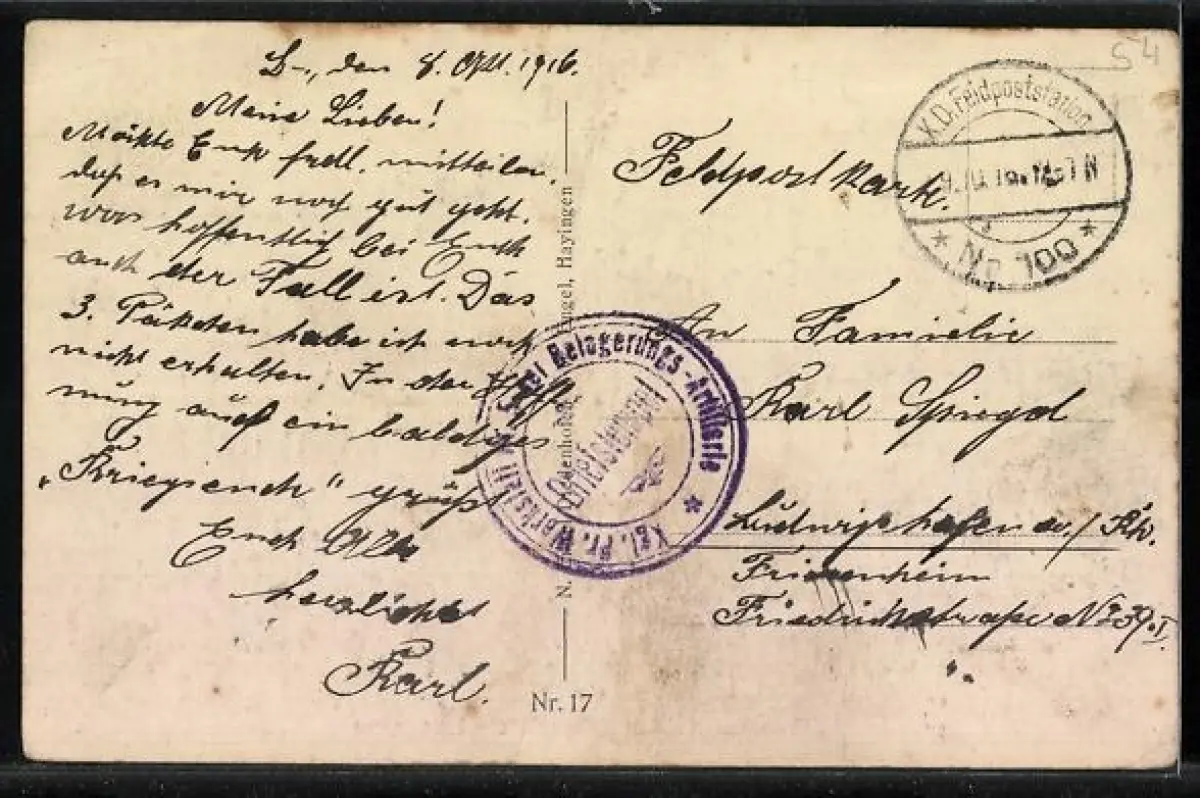 S 4
D., den 8. Okt. 1916.
Meine Lieben!
Möchte Euch frdl. mitteilen,
daß es mir noch gut geht.
was hoffentlich bei Euch
auch der Fall ist. Das
3. Päkchen habe ich noch
nicht erhalten. In der Hoff-
nung auf ein baldiges
„Kriegsende" grüßt
Euch
herzlichst
Karl.
Feldpostkarte.
K.D. Feldpoststation
Nr. 100
An Familie
Karl Spiegel
Ludwigshafen a/Rh.
Friesenheim
Friedrichstraße No 39. I.
Kgl. Pr. Werkstatt bei Belagerungs-Artillerie
Briefstempel
Hayingen
Nr. 17